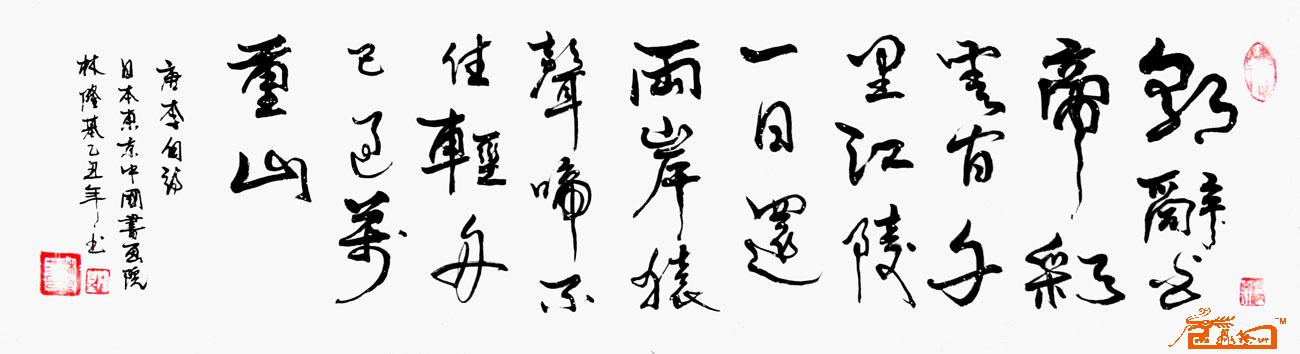 朝辭白
帝彩
雲間千
里江陵
一日還
兩岸猿
聲啼不
住輕舟
已過萬
重山
唐李白詩
日本東京中國書画院
林隆基乙丑年书